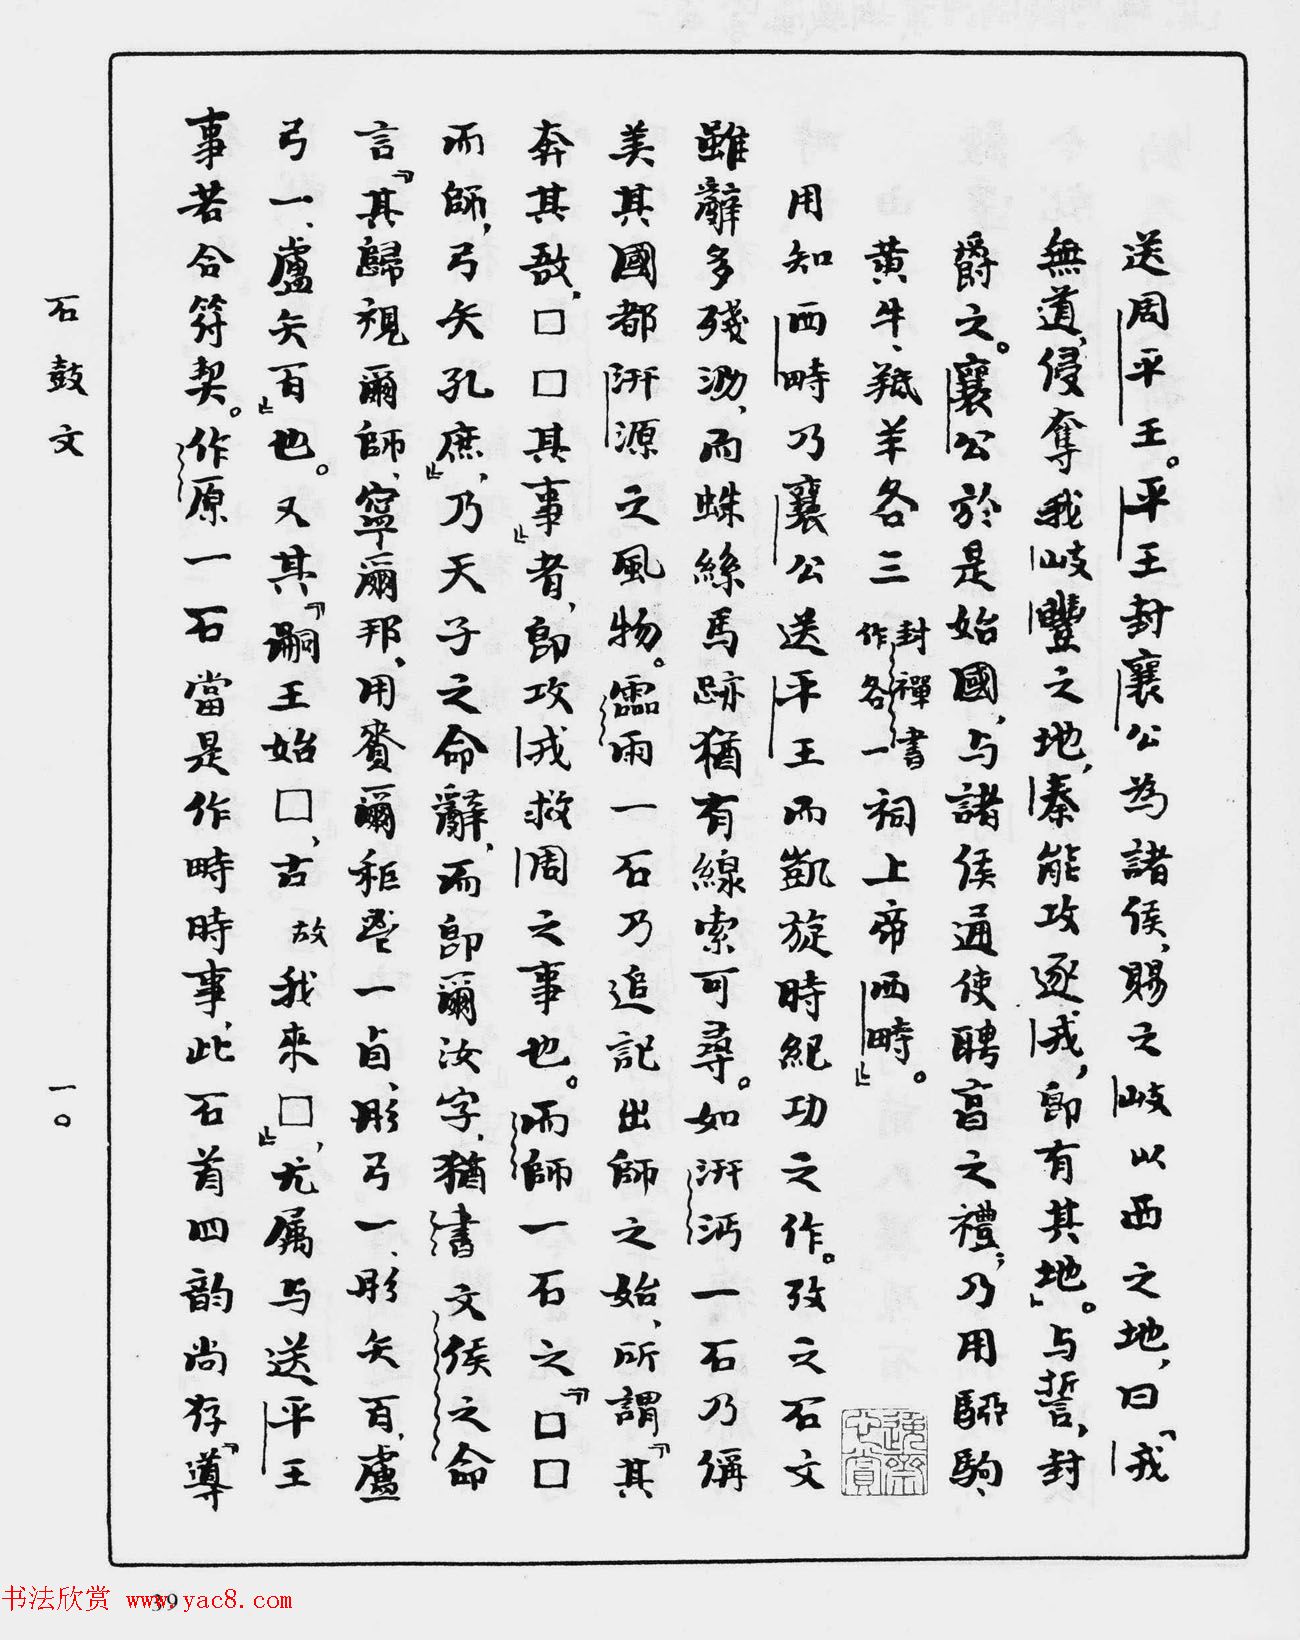 送周平王。平王封襄公為諸侯,賜之岐以西之地,曰『戎
無道,侵奪我岐豐之地,秦能攻逐戎,即有其地。』与誓,封
爵之。襄公於是始國,与諸侯通使聘享之禮;乃用騮駒、
黄牛、羝羊各三封禪書作各一祠上帝西畤』。
用知西畤乃襄公送平王而凱旋時紀功之作。攷之石文
雖辭多殘泐,而蛛絲馬跡猶有線索可尋。如汧沔一石乃偁
美其國都汧源之風物。霝雨一石乃追記出師之始,所謂『其
奔其敔,□□其事』者,即攻戎救周之事也。而師一石之『□□
而師,弓矢孔庶』,乃天子之命辭,而即爾汝字,猶書文侯之命
言『其歸視爾師,寧爾邦,用賚爾秬鬯一卣,彤弓一,彤矢百,盧
弓一,盧矢百』也。又其『嗣王始□,古故我來□』,尤属与送平王
事若合符契。作原一石當是作畤時事,此石首四韵尚存『導
石鼓文
一〇
39
书法欣赏 www.yac8.com